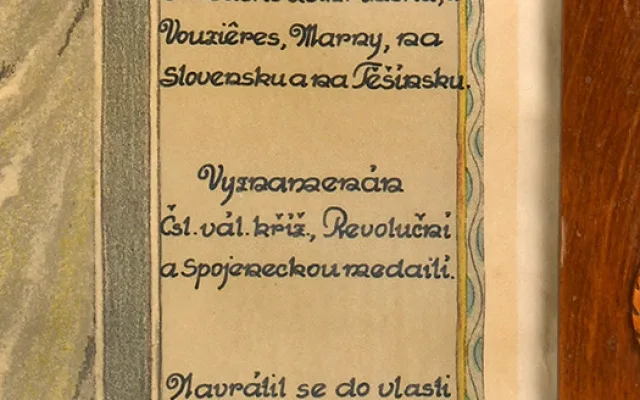 Vouziêres, Marny, na
Slovensku a na Těšínsku.
Vyznamenán
Čsl. vál. kříž., Revoluční
a Spojeneckou medailí.
Navrátil se do vlasti